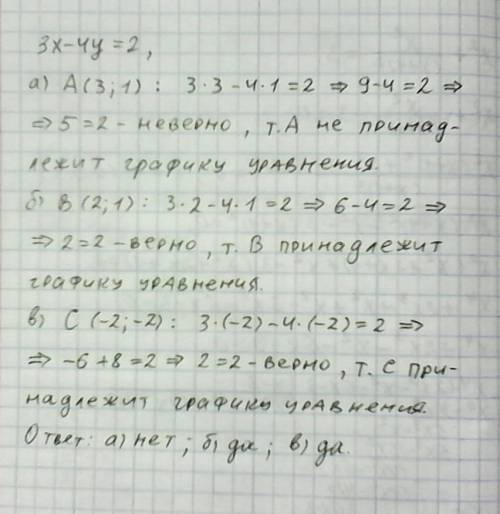 3x-4y=2,
а) A(3;1): 3·3-4·1=2 ⇒ 9-4=2 ⇒
⇒ 5=2 - неверно, т.A не принад-
лежит графику уравнения.
б) B(2;1): 3·2-4·1=2 ⇒ 6-4=2 ⇒
⇒ 2=2 - верно, т. B принадлежит
графику уравнения.
в) C(-2;-2): 3·(-2)-4·(-2)=2 ⇒
⇒ -6+8=2 ⇒ 2=2 - верно, т. C при-
надлежит графику уравнения.
Ответ: а) нет; б) да; в) да.